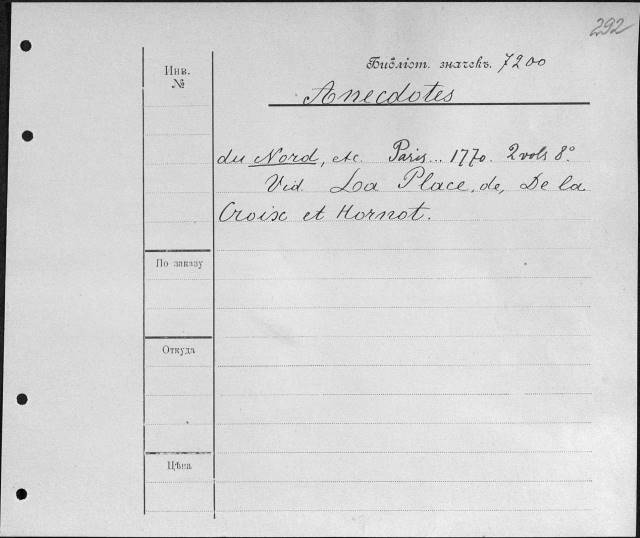 292
Библіот. значекъ. 7200
Инв.
№
Anecdotes
du Nord, etc. Paris... 1770. 2 vols 8°.
Vid. La Place, de, De la
Croix et Hornot.
По заказу
Откуда
Цѣна